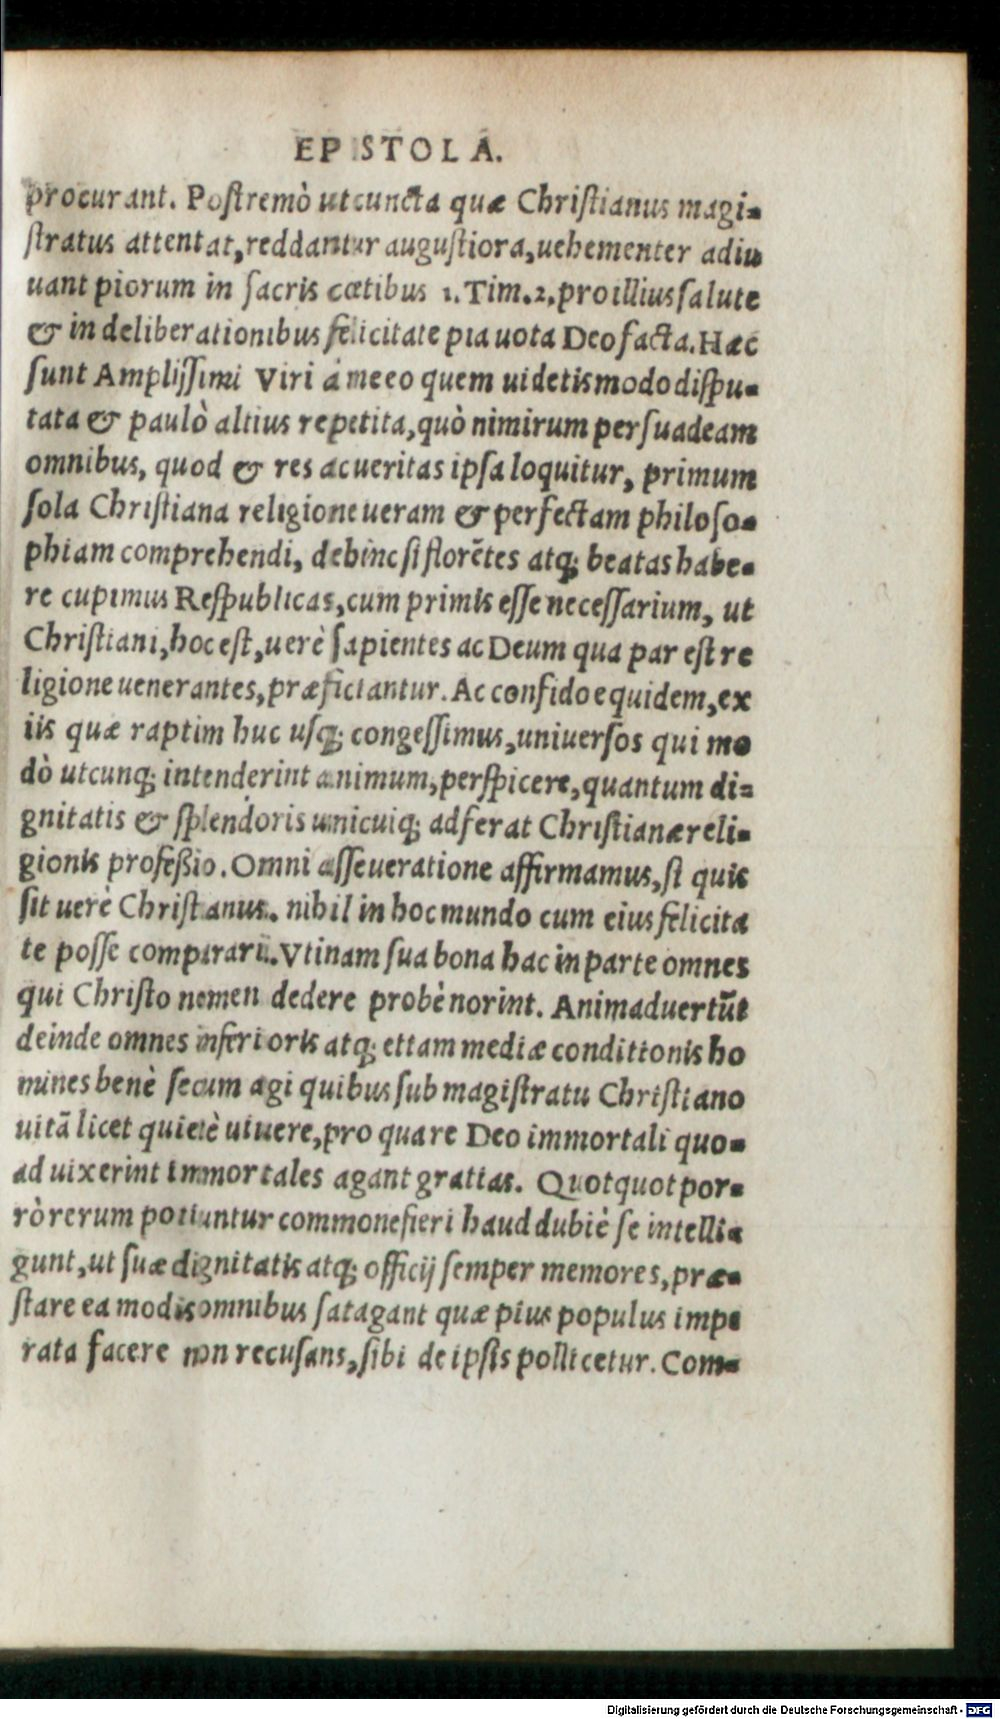 EPISTOLA.
procurant. Postremò ut cuncta quæ Christianus magi-
stratus attentat, reddantur augustiora, uehementer adiu
uant piorum in sacris cœtibus 1. Tim. 2. pro illius salute
& in deliberationibus felicitate pia uota Deo facta. Hæc
sunt Amplissimi Viri á me eo quem uidetis modo dispu-
tata & paulò altius repetita, quò nimirum persuadeam
omnibus, quod & res ac ueritas ipsa loquitur, primum
sola Christiana religione ueram & perfectam philoso-
phiam comprehendi, dehinc si florẽtes atq; beatas habe-
re cupimus Respublicas, cum primis esse necessarium, ut
Christiani, hoc est, uerè sapientes ac Deum qua par est re
ligione uenerantes, præficiantur. Ac confido equidem, ex
iis quæ raptim huc usq; congessimus, uniuersos qui mo
dò utcunq; intenderint animum, perspicere, quantum di-
gnitatis & splendoris unicuiq; adferat Christianæ reli-
gionis profeßio. Omni asseueratione affirmamus, si quis
sit uerè Christianus. nihil in hoc mundo cum eius felicita
te posse comparari. Vtinam sua bona hac in parte omnes
qui Christo nomen dedere probè norint. Animaduertũt
deinde omnes inferioris atq; etiam mediæ conditionis ho
mines benè secum agi quibus sub magistratu Christiano
uitã licet quietè uiuere, pro qua re Deo immortali quo-
ad uixerint immortales agant gratias. Quotquot por-
rò rerum potiuntur commonefieri haud dubiè se intelli-
gunt, ut suæ dignitatis atq; officij semper memores, præ-
stare ea modis omnibus satagant quæ pius populus impe
rata facere non recusans, sibi de ipsis pollicetur. Com-
Digitalisierung gefördert durch die Deutsche Forschungsgemeinschaft - DFG